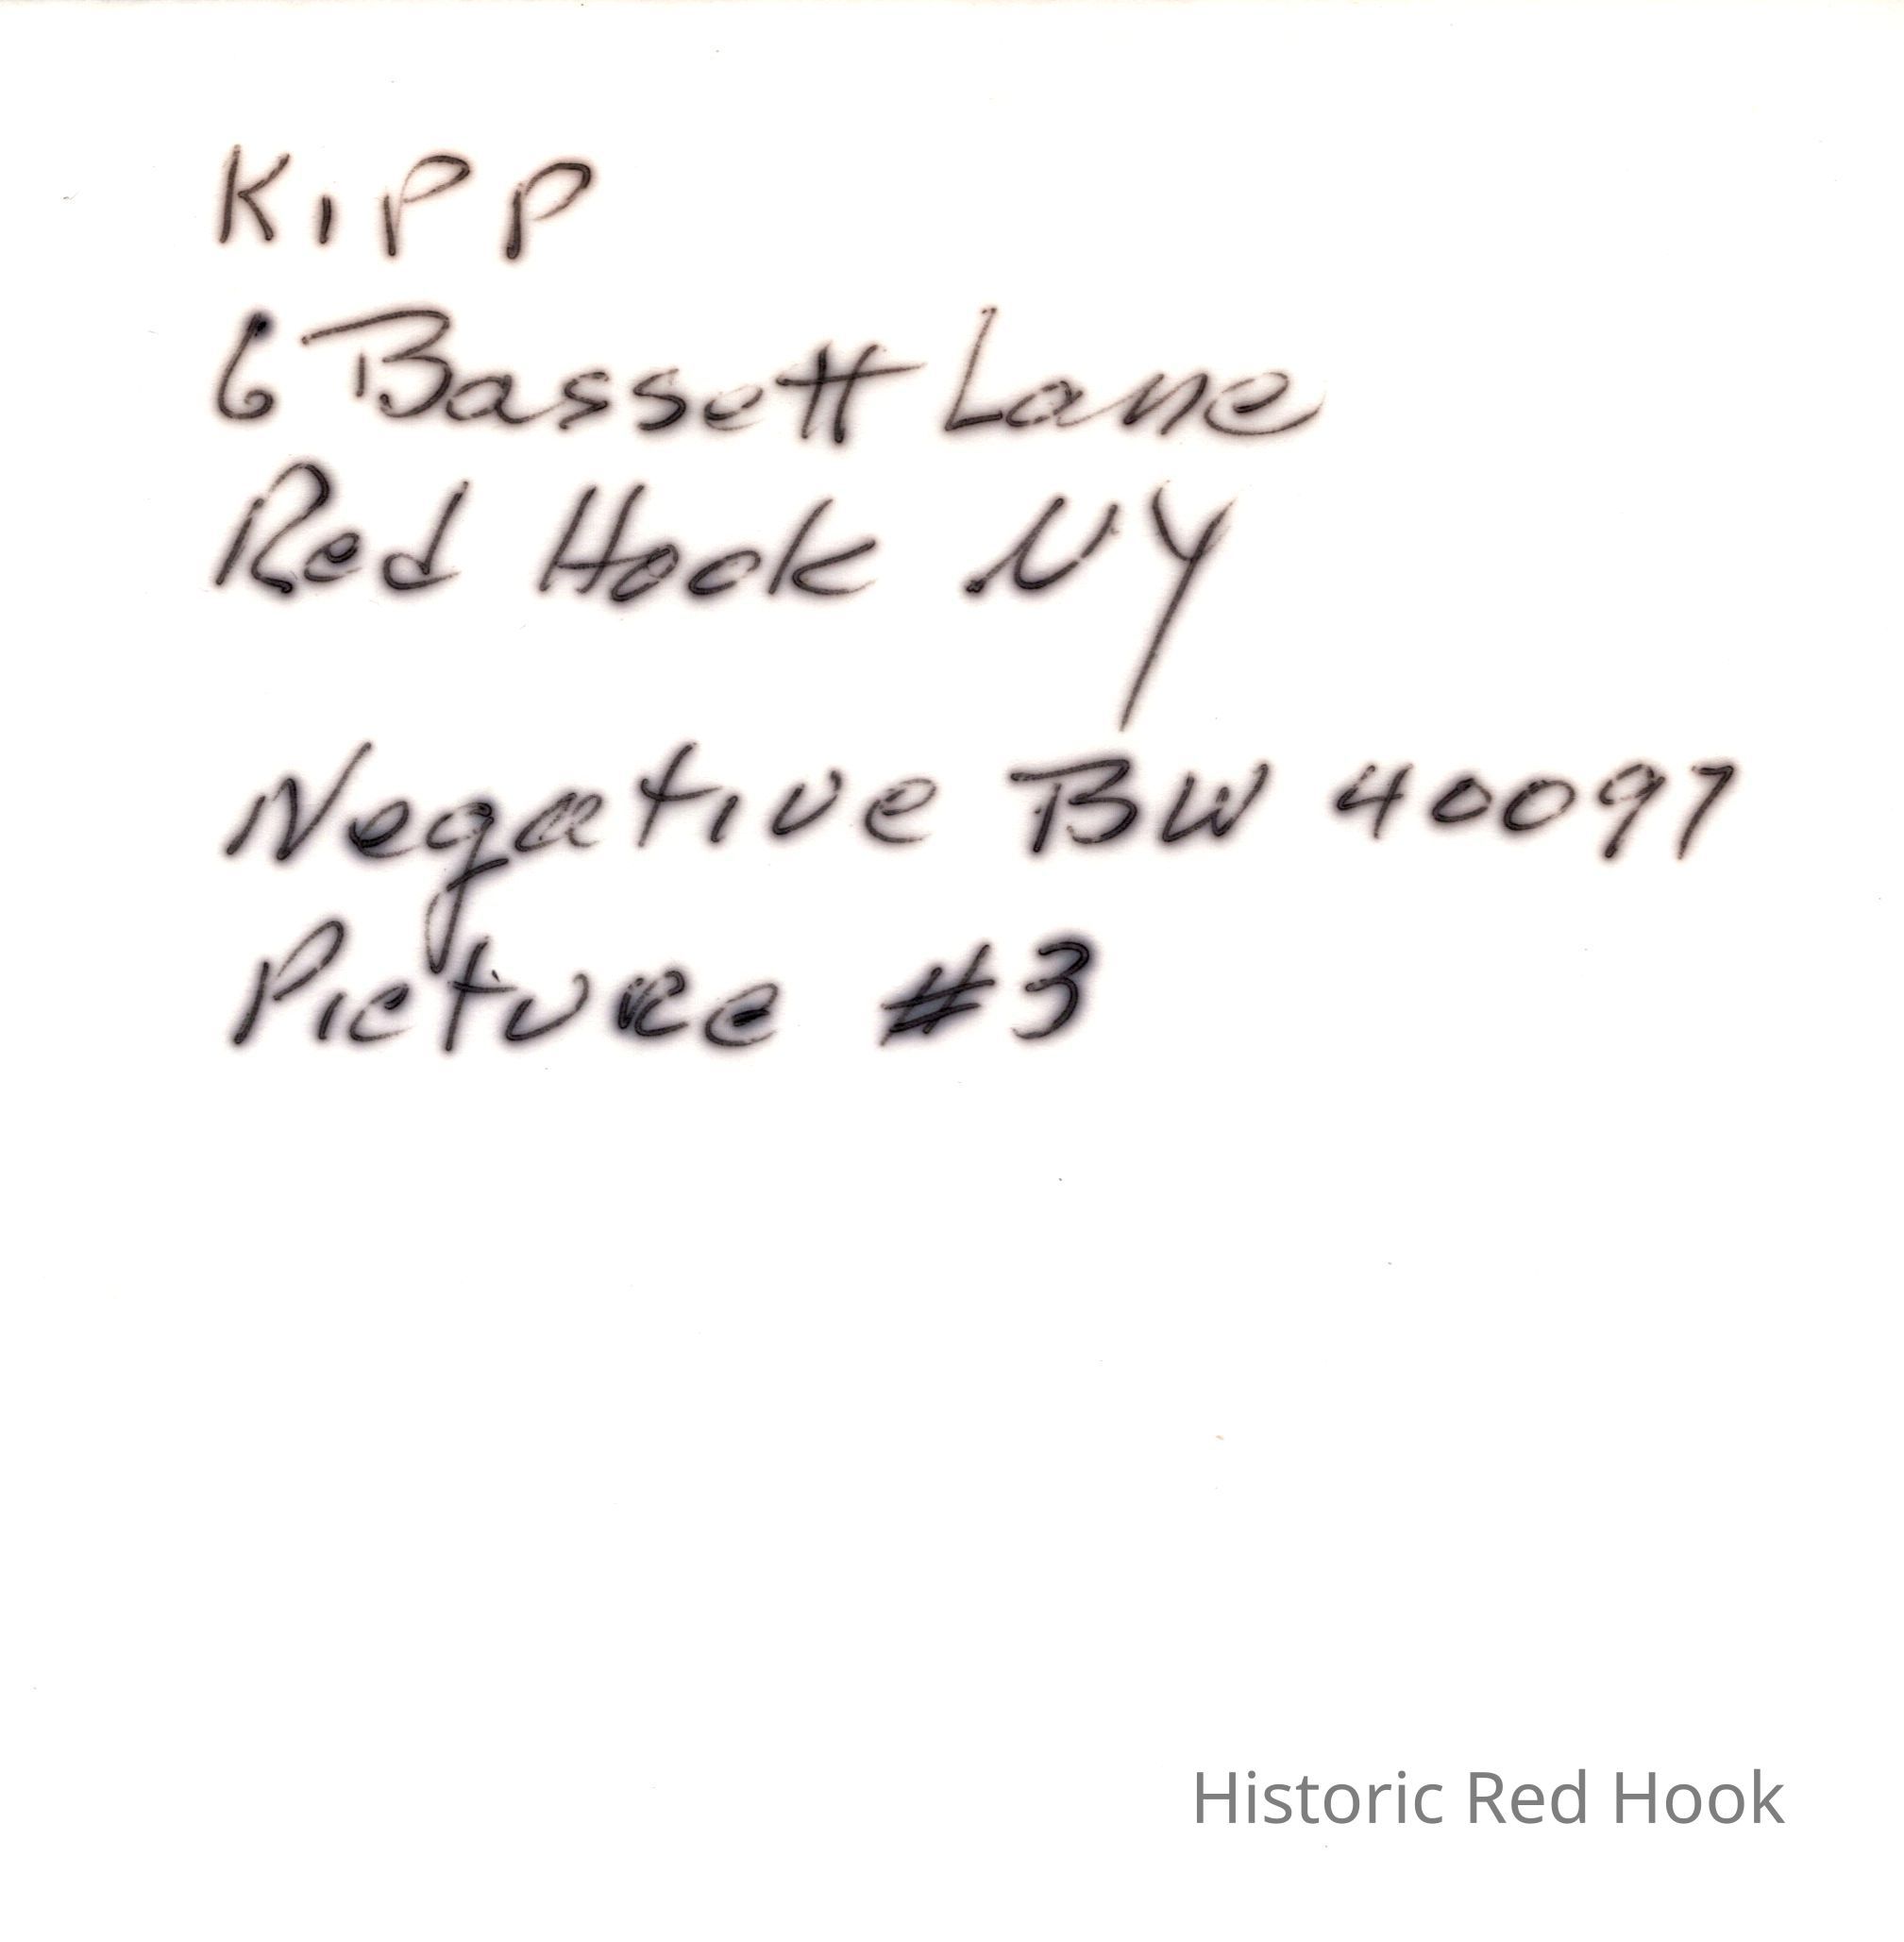 Kipp
6 Bassett Lane
Red Hook NY
Negative BW 40097
Picture #3
Historic Red Hook